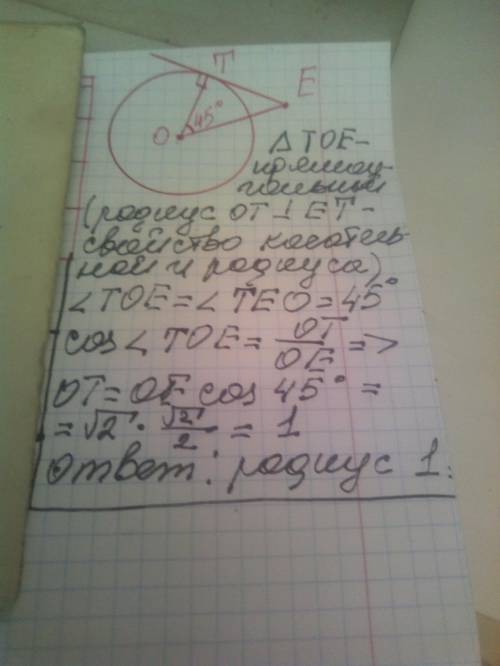 T
E
O 45°
△ TOE-
прямоу-
гольный
(радиус OT ⊥ ET-
свойство касатель-
ной и радиуса)
∠TOE=∠TEO=45°
cos∠TOE= OT/OE =>
OT=OE cos 45° =
= √2 · √2/2 = 1
Ответ: радиус 1.